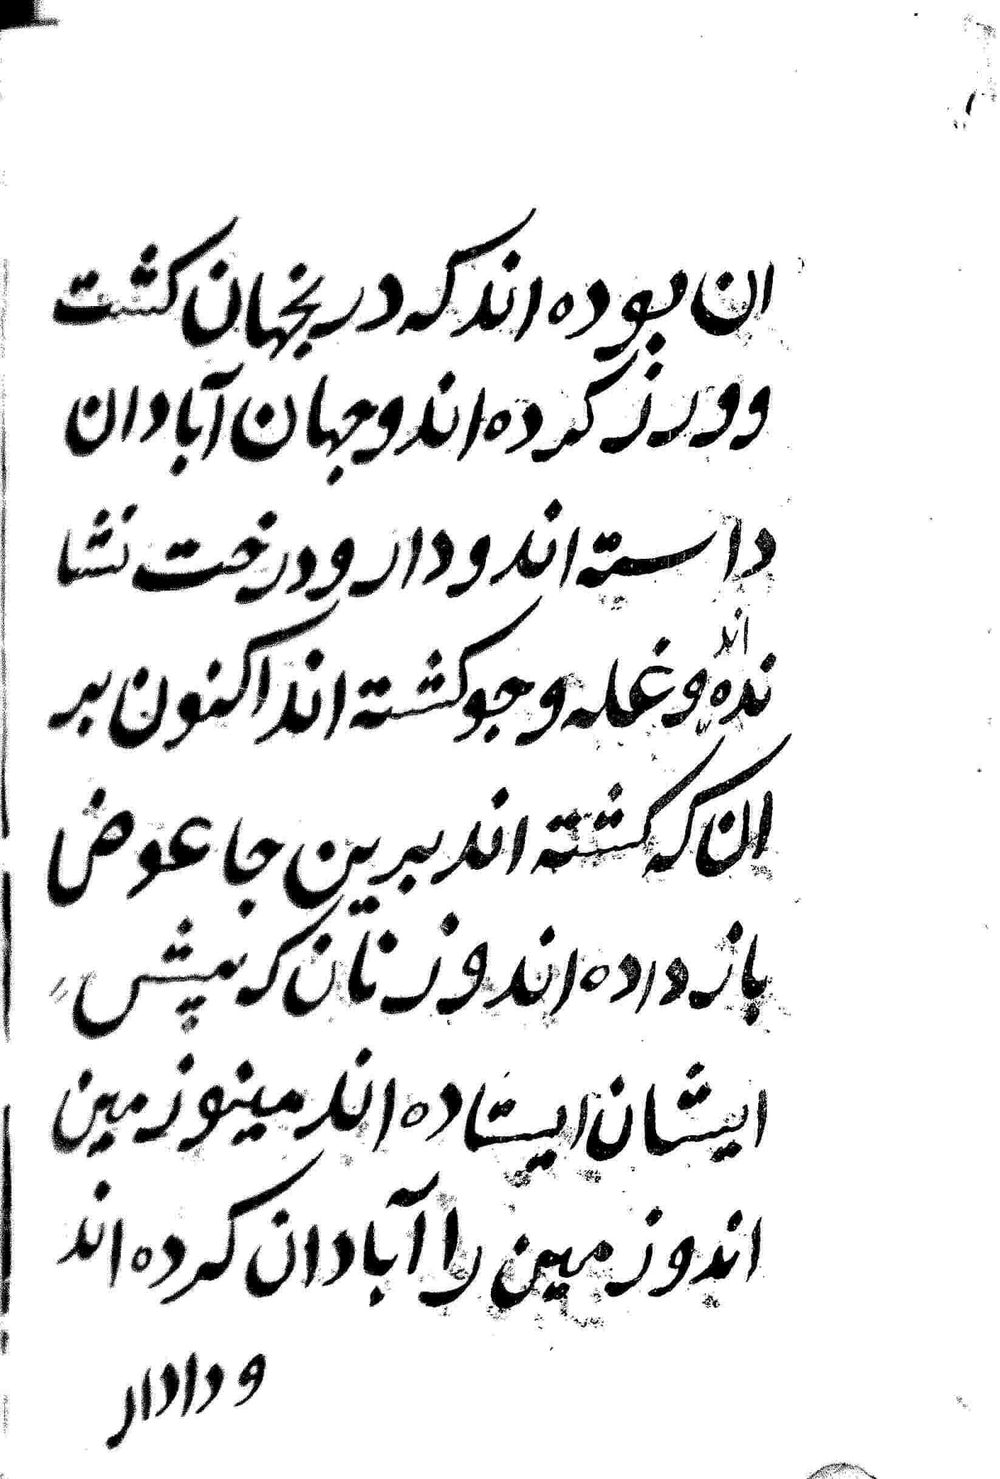 ان بوده اند که درینجهان کشت
و ورز کرده اند و جهان آبادان
داسته اند و دار و درخت نشا
نده اند و غله و جو کشته اند اکنون بر
ان که کشته اند برین جا عوض
باز داده اند و زنان که پیش
ایشان ایستاده اند مینو زمین
اند و زمین را آبادان کرده اند
و دادار